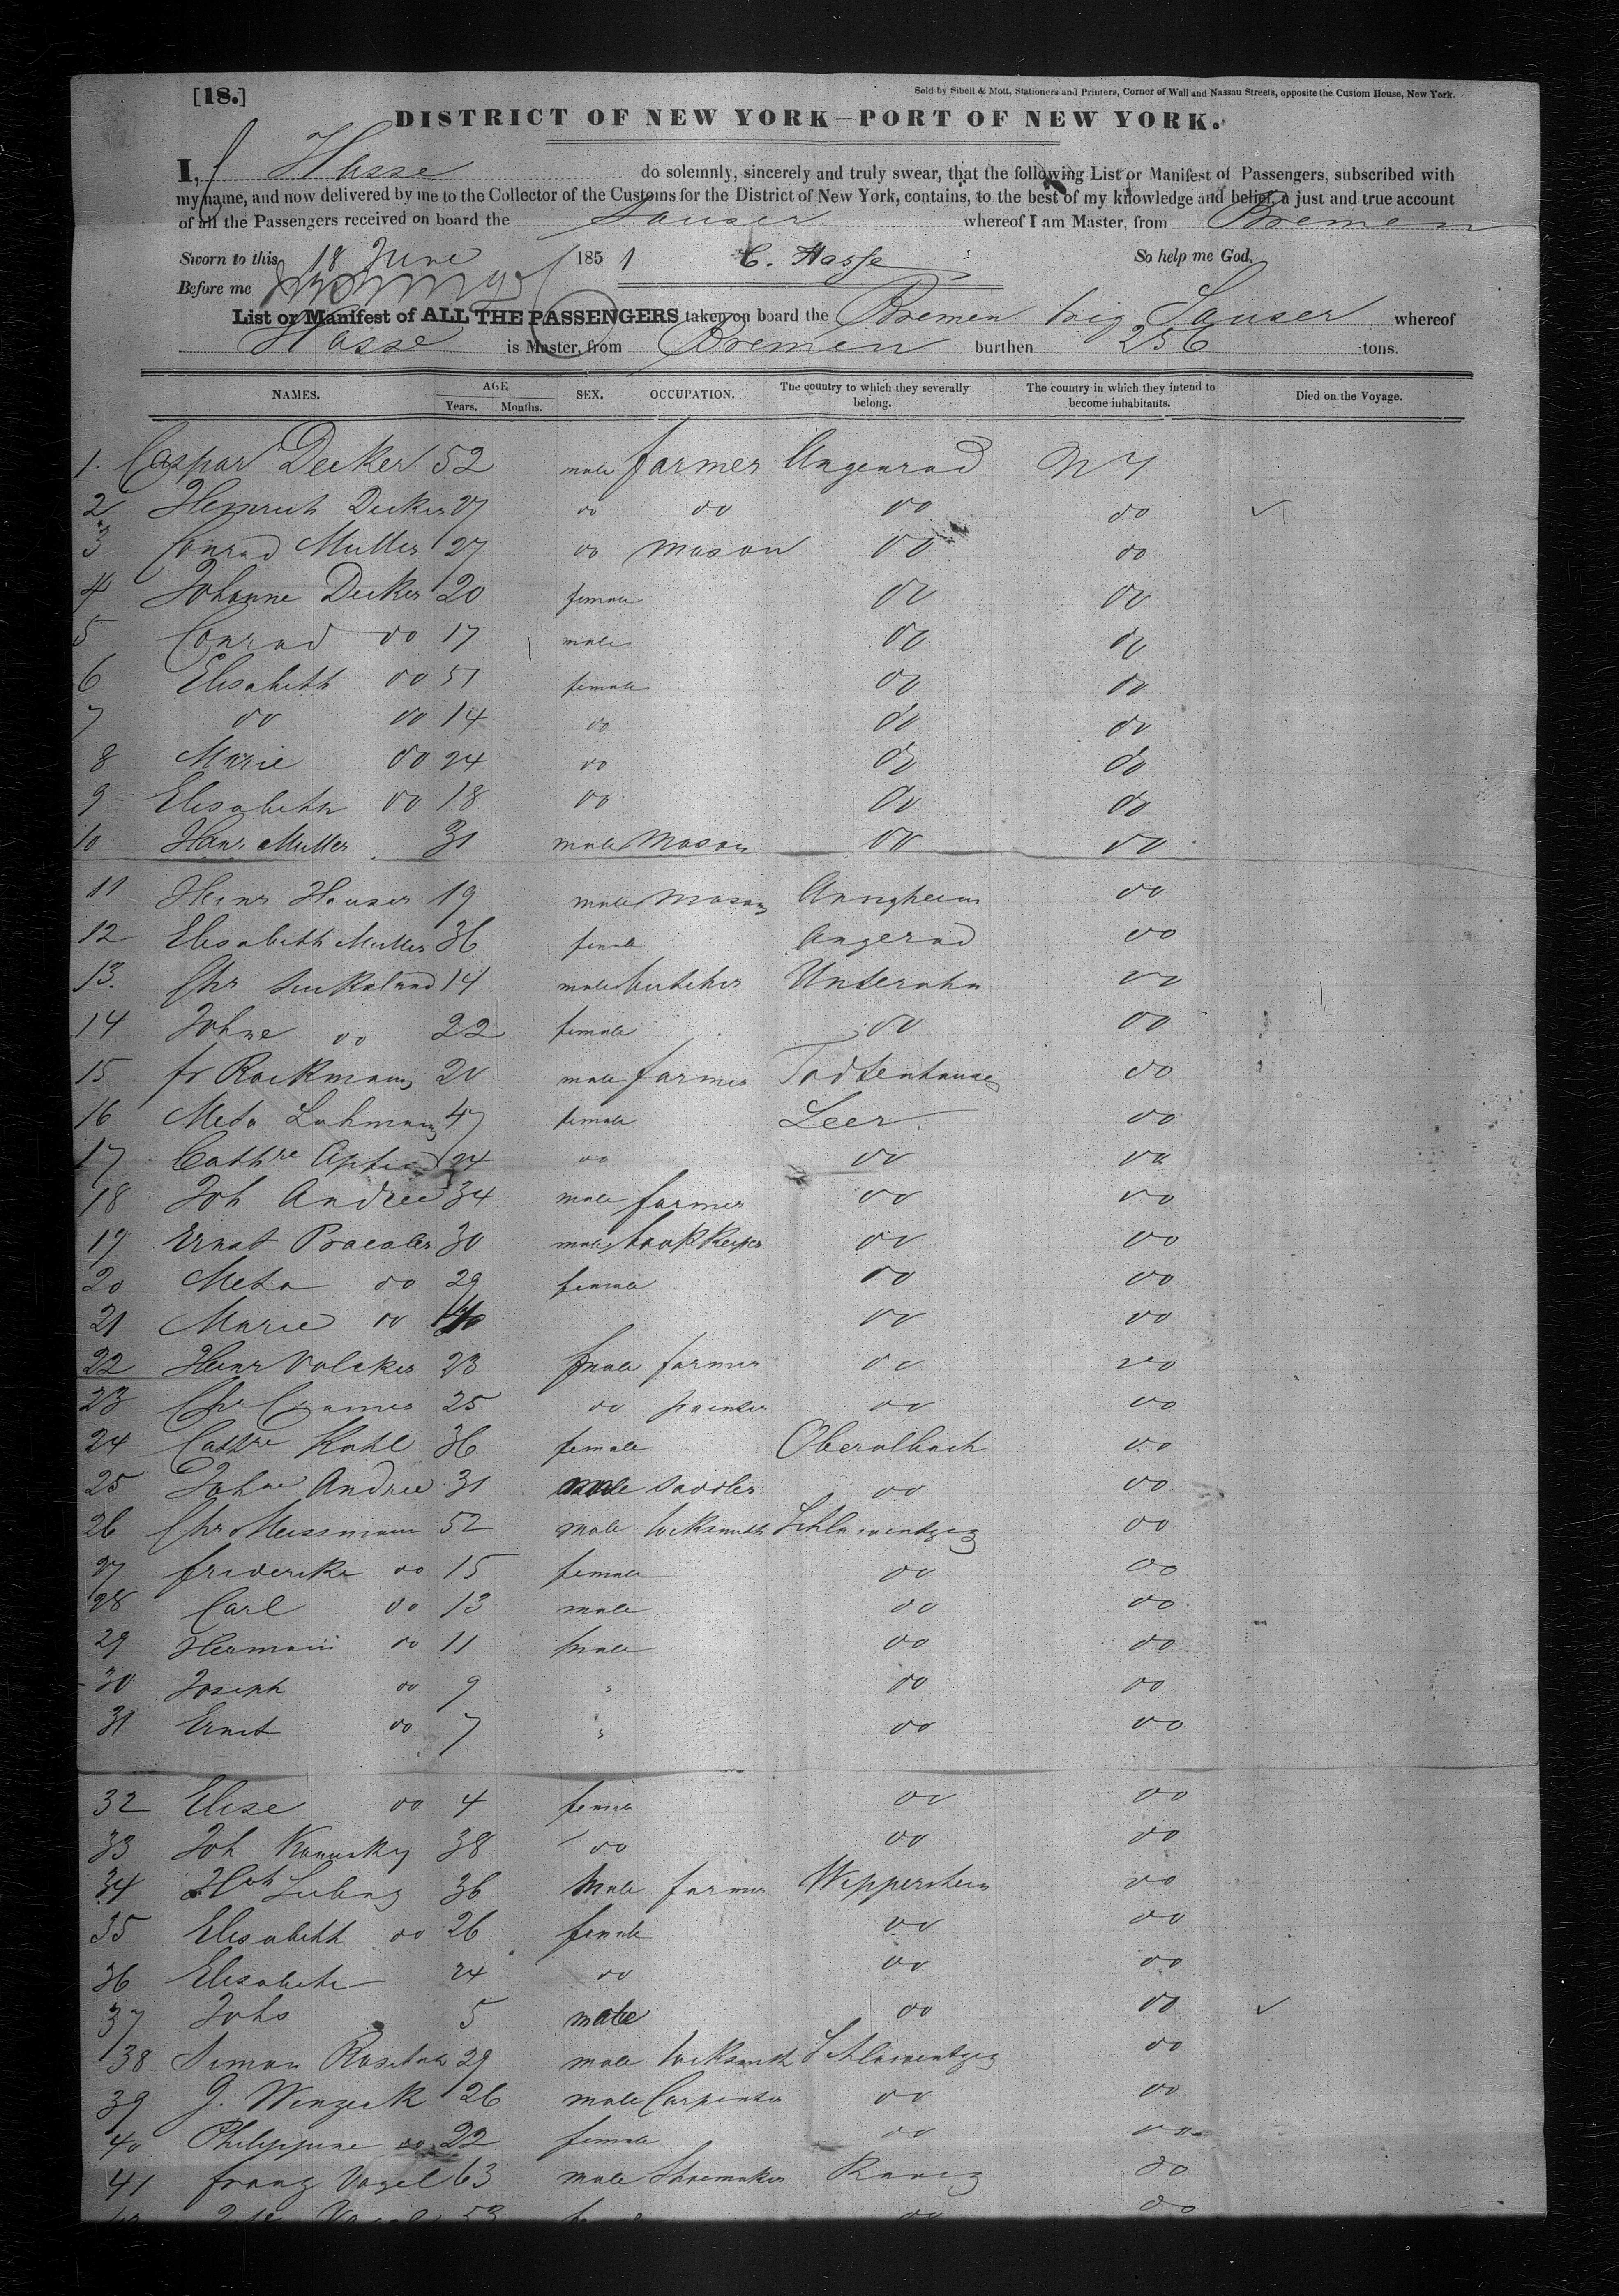 [18.]
Sold by Sibell & Mott, Stationers and Printers, Corner of Wall and Nassau Streets, opposite the Custom House, New York.
DISTRICT OF NEW YORK—PORT OF NEW YORK.
I, Hasse do solemnly, sincerely and truly swear, that the following List or Manifest of Passengers, subscribed with
my name, and now delivered by me to the Collector of the Customs for the District of New York, contains, to the best of my knowledge and belief, a just and true account
of all the Passengers received on board the Sauser whereof I am Master, from Bremen
Sworn to this 18 June 1851 C. Hasse So help me God.
Before me
List or Manifest of ALL THE PASSENGERS taken on board the Bremen brig Sauser whereof
Hasse is Master, from Bremen burthen 256 tons.
NAMES. AGE Years. Months. SEX. OCCUPATION. The country to which they severally belong. The country in which they intend to become inhabitants. Died on the Voyage.
1. Caspar Decker 52 male farmer Angenrod NY
2 Heinrich Decker 27 do do do do
3 Conrad Muller 27 do mason do do
4 Johanne Decker 20 female do do
5 Conrad do 17 male do do
6 Elisabeth do 51 female do do
7 do do 14 do do do
8 Marie do 24 do do do
9 Elisabeth do 18 do do do
10 Hanr Muller 31 male Mason do do
11 Heinr Hauser 19 male mason do
12 Elisabeth Muller 36 female Angerod do
13. Chr 14 male butcher do
14 Johne do 22 female do do
15 fr Rockmann 20 male farmer Todtenhausen do
16 Meta Lahmann 47 female Leer do
17 Cathre 24 do do do
18 Joh Andree 34 male farmer do do
19 Ernst 30 male bookkeeper do do
20 Meta do 29 female do do
21 Marie do do do
22 Heinr Volcker 23 male farmer do do
23 Chr Cramer 25 do painter do do
24 Cathre Kohl 36 female Oberolbach do
25 Johne Andree 31 male saddler do do
26 Chr Meissmann 52 male locksmith do
27 frederike do 15 female do do
28 Carl do 13 male do do
29 Hermann do 11 male do do
30 Joseph do 9 " do do
31 Ernst do 7 " do do
32 Elise do 4 female do do
33 Joh 38 do do do
34 Hch 36 male farmer do
35 Elisabeth do 26 female do do
36 Elisabeth 24 do do do
37 Johs 5 male do do
38 Simon 29 male locksmith do
39 J. Winzeck 26 male Carpenter do do
40 Philippine do 22 female do do
41 franz Vogel 63 male Shoemaker do
Vogel 53 do do